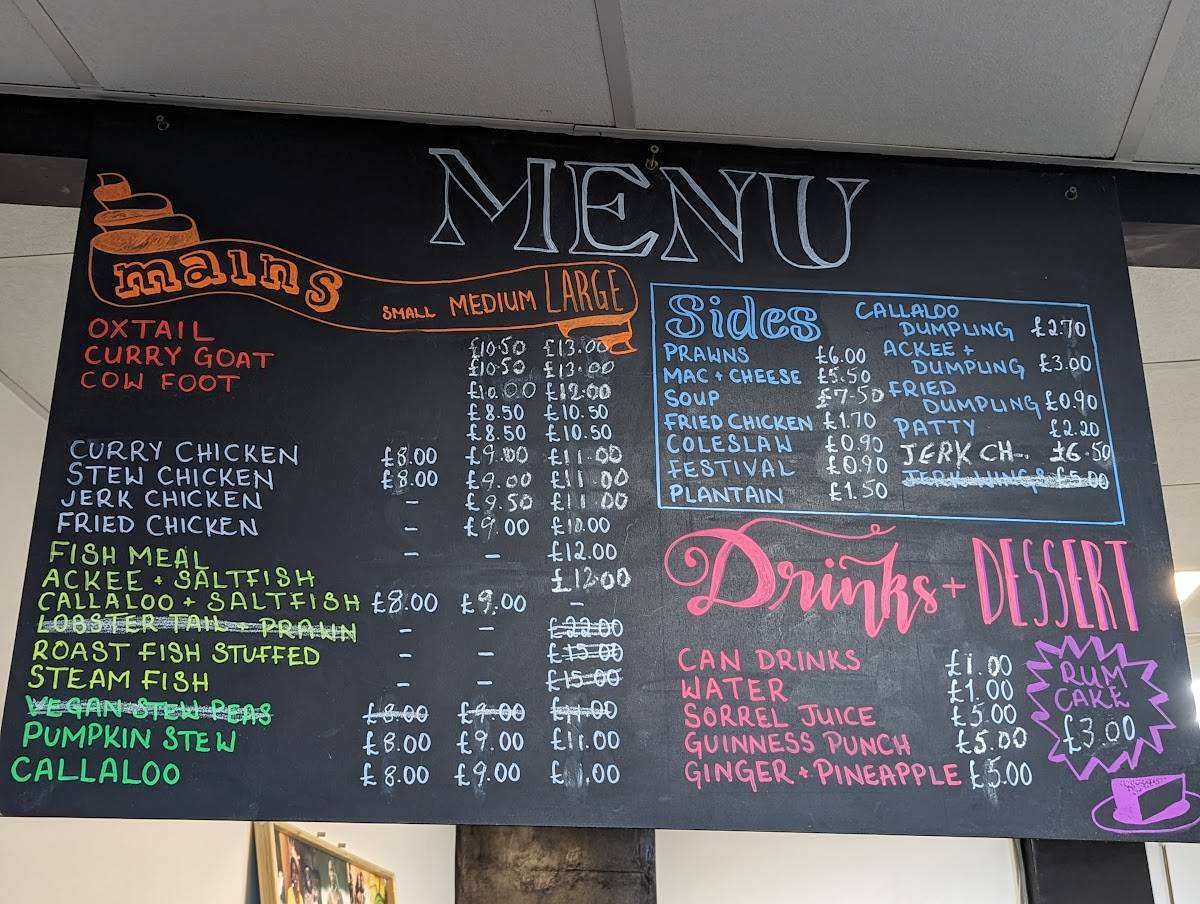 MENU
mains SMALL MEDIUM LARGE
OXTAIL £10.50 £13.00
CURRY GOAT £10.50 £13.00
COW FOOT £10.00 £12.00
£8.50 £10.50
£8.50 £10.50
CURRY CHICKEN £8.00 £9.00 £11.00
STEW CHICKEN £8.00 £9.00 £11.00
JERK CHICKEN – £9.50 £11.00
FRIED CHICKEN £9.00 £10.00
FISH MEAL – – £12.00
ACKEE + SALTFISH £12.00
CALLALOO + SALTFISH £8.00 £9.00 –
LOBSTER TAIL + PRAWN – – £22.00
ROAST FISH STUFFED – – £15.00
STEAM FISH – – £15.00
VEGAN STEW PEAS £8.00 £9.00 £11.00
PUMPKIN STEW £8.00 £9.00 £11.00
CALLALOO £8.00 £9.00 £11.00
Sides
PRAWNS £6.00
MAC + CHEESE £5.50
SOUP £7.50
FRIED CHICKEN £1.70
COLESLAW £0.90
FESTIVAL £0.90
PLANTAIN £1.50
CALLALOO
DUMPLING £2.70
ACKEE +
DUMPLING £3.00
FRIED
DUMPLING £0.90
PATTY £2.20
JERK CH-. £6.50
JERK WINGS £5.00
Drinks + DESSERT
CAN DRINKS £1.00
WATER £1.00
SORREL JUICE £5.00
GUINNESS PUNCH £5.00
GINGER + PINEAPPLE £5.00
RUM
CAKE
£3.00